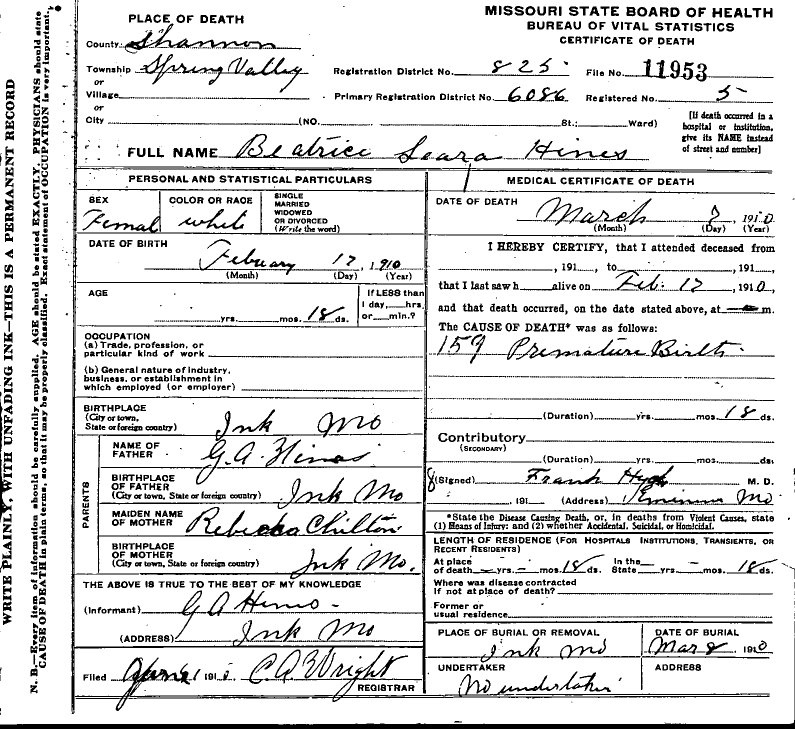 MISSOURI STATE BOARD OF HEALTH
BUREAU OF VITAL STATISTICS
CERTIFICATE OF DEATH
PLACE OF DEATH
County Shannon
Township Spring Valley
or
Village
or
City (NO. St.; Ward)
Registration District No. 825 File No. 11953
Primary Registration District No. 6086 Registered No. 5
[If death occurred in a
hospital or institution,
give its NAME instead
of street and number]
FULL NAME Beatrice Leara Hines
PERSONAL AND STATISTICAL PARTICULARS
SEX
Femal
COLOR OR RACE
white
SINGLE
MARRIED
WIDOWED
OR DIVORCED
(Write the word)
DATE OF BIRTH
Febuary 17, 1910
(Month) (Day) (Year)
AGE
yrs. mos. 18 ds.
If LESS than
1 day, hrs.
or min.?
OCCUPATION
(a) Trade, profession, or
particular kind of work
(b) General nature of industry,
business, or establishment in
which employed (or employer)
BIRTHPLACE
(City or town,
State or foreign country) Ink Mo
PARENTS
NAME OF
FATHER G. A. Hines
BIRTHPLACE
OF FATHER
(City or town, State or foreign country) Ink Mo
MAIDEN NAME
OF MOTHER Rebecca Chilton
BIRTHPLACE
OF MOTHER
(City or town, State or foreign country) Ink Mo.
THE ABOVE IS TRUE TO THE BEST OF MY KNOWLEDGE
(Informant) G A Hines
(ADDRESS) Ink Mo
Filed 191 C. A. Wright
REGISTRAR
MEDICAL CERTIFICATE OF DEATH
DATE OF DEATH
March 7, 1910
(Month) (Day) (Year)
I HEREBY CERTIFY, that I attended deceased from
, 191 , to , 191 ,
that I last saw h alive on Feb. 17 , 1910,
and that death occurred, on the date stated above, at m.
The CAUSE OF DEATH* was as follows:
159 Premature Birth
(Duration) yrs. mos. 18 ds.
Contributory
(SECONDARY)
(Duration) yrs. mos. ds.
(Signed) Frank M. D.
, 191 (Address) Eminence Mo
*State the Disease Causing Death, or, in deaths from Violent Causes, state
(1) Means of Injury; and (2) whether Accidental, Suicidal, or Homicidal.
LENGTH OF RESIDENCE (FOR HOSPITALS INSTITUTIONS, TRANSIENTS, OR
RECENT RESIDENTS)
At place
of death yrs. mos. 18 ds. In the
State yrs. mos. 18 ds.
Where was disease contracted
if not at place of death?
Former or
usual residence
PLACE OF BURIAL OR REMOVAL
Ink Mo
DATE OF BURIAL
Mar 8 1910
UNDERTAKER
No undertaker
ADDRESS
WRITE PLAINLY, WITH UNFADING INK—THIS IS A PERMANENT RECORD
N. B.—Every item of information should be carefully supplied. AGE should be stated EXACTLY. PHYSICIANS should state
CAUSE OF DEATH in plain terms, so that it may be properly classified. Exact statement of OCCUPATION is very important.